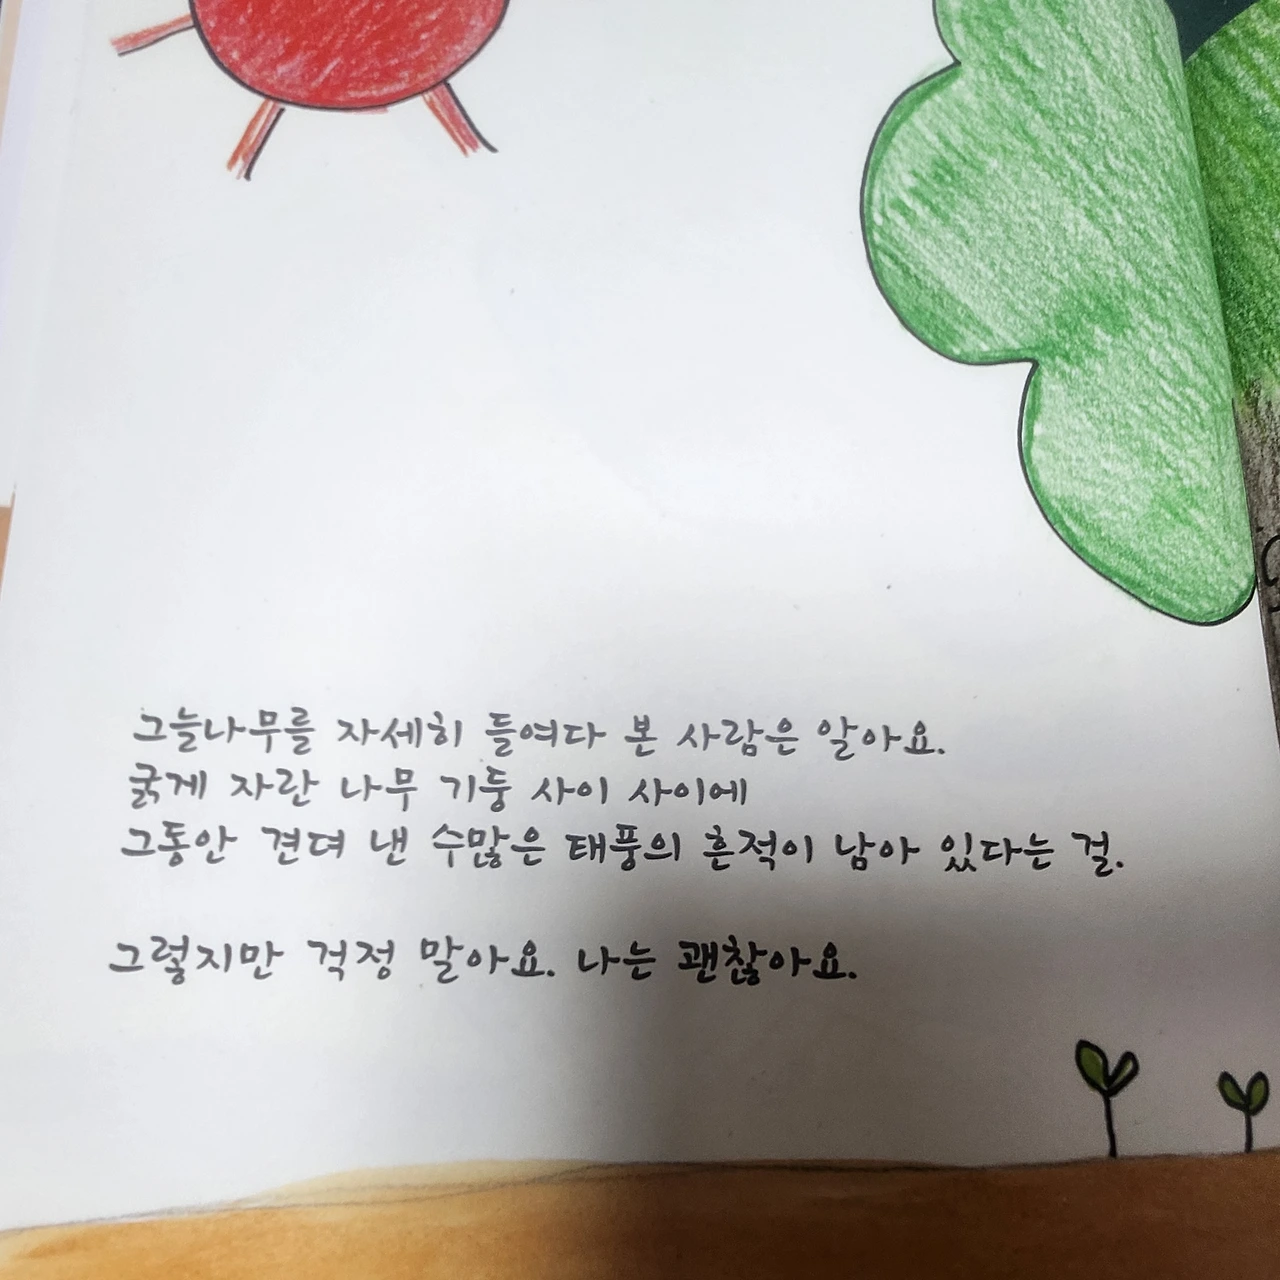 그늘나무를 자세히 들여다 본 사람은 알아요.
굵게 자란 나무 기둥 사이 사이에
그동안 견뎌 낸 수많은 태풍의 흔적이 남아 있다는 걸.
그렇지만 걱정 말아요. 나는 괜찮아요.